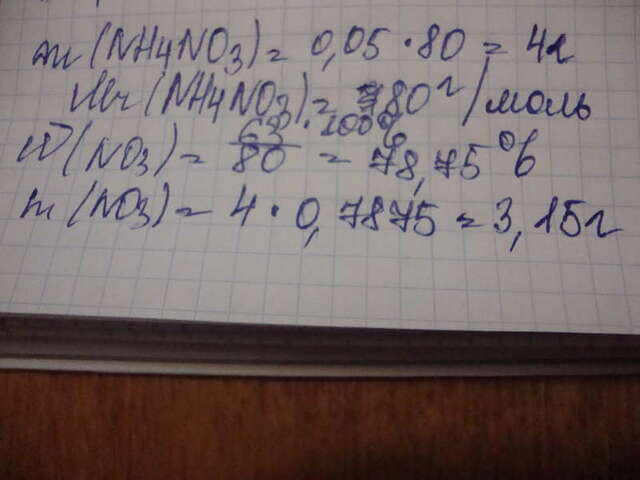 m(NH4NO3) = 0,05 · 80 = 4г
Mr(NH4NO3) = 80г/моль
W(NO3) = 63 · 100% / 80 = 78,75%
m(NO3) = 4 · 0,7875 = 3,15г